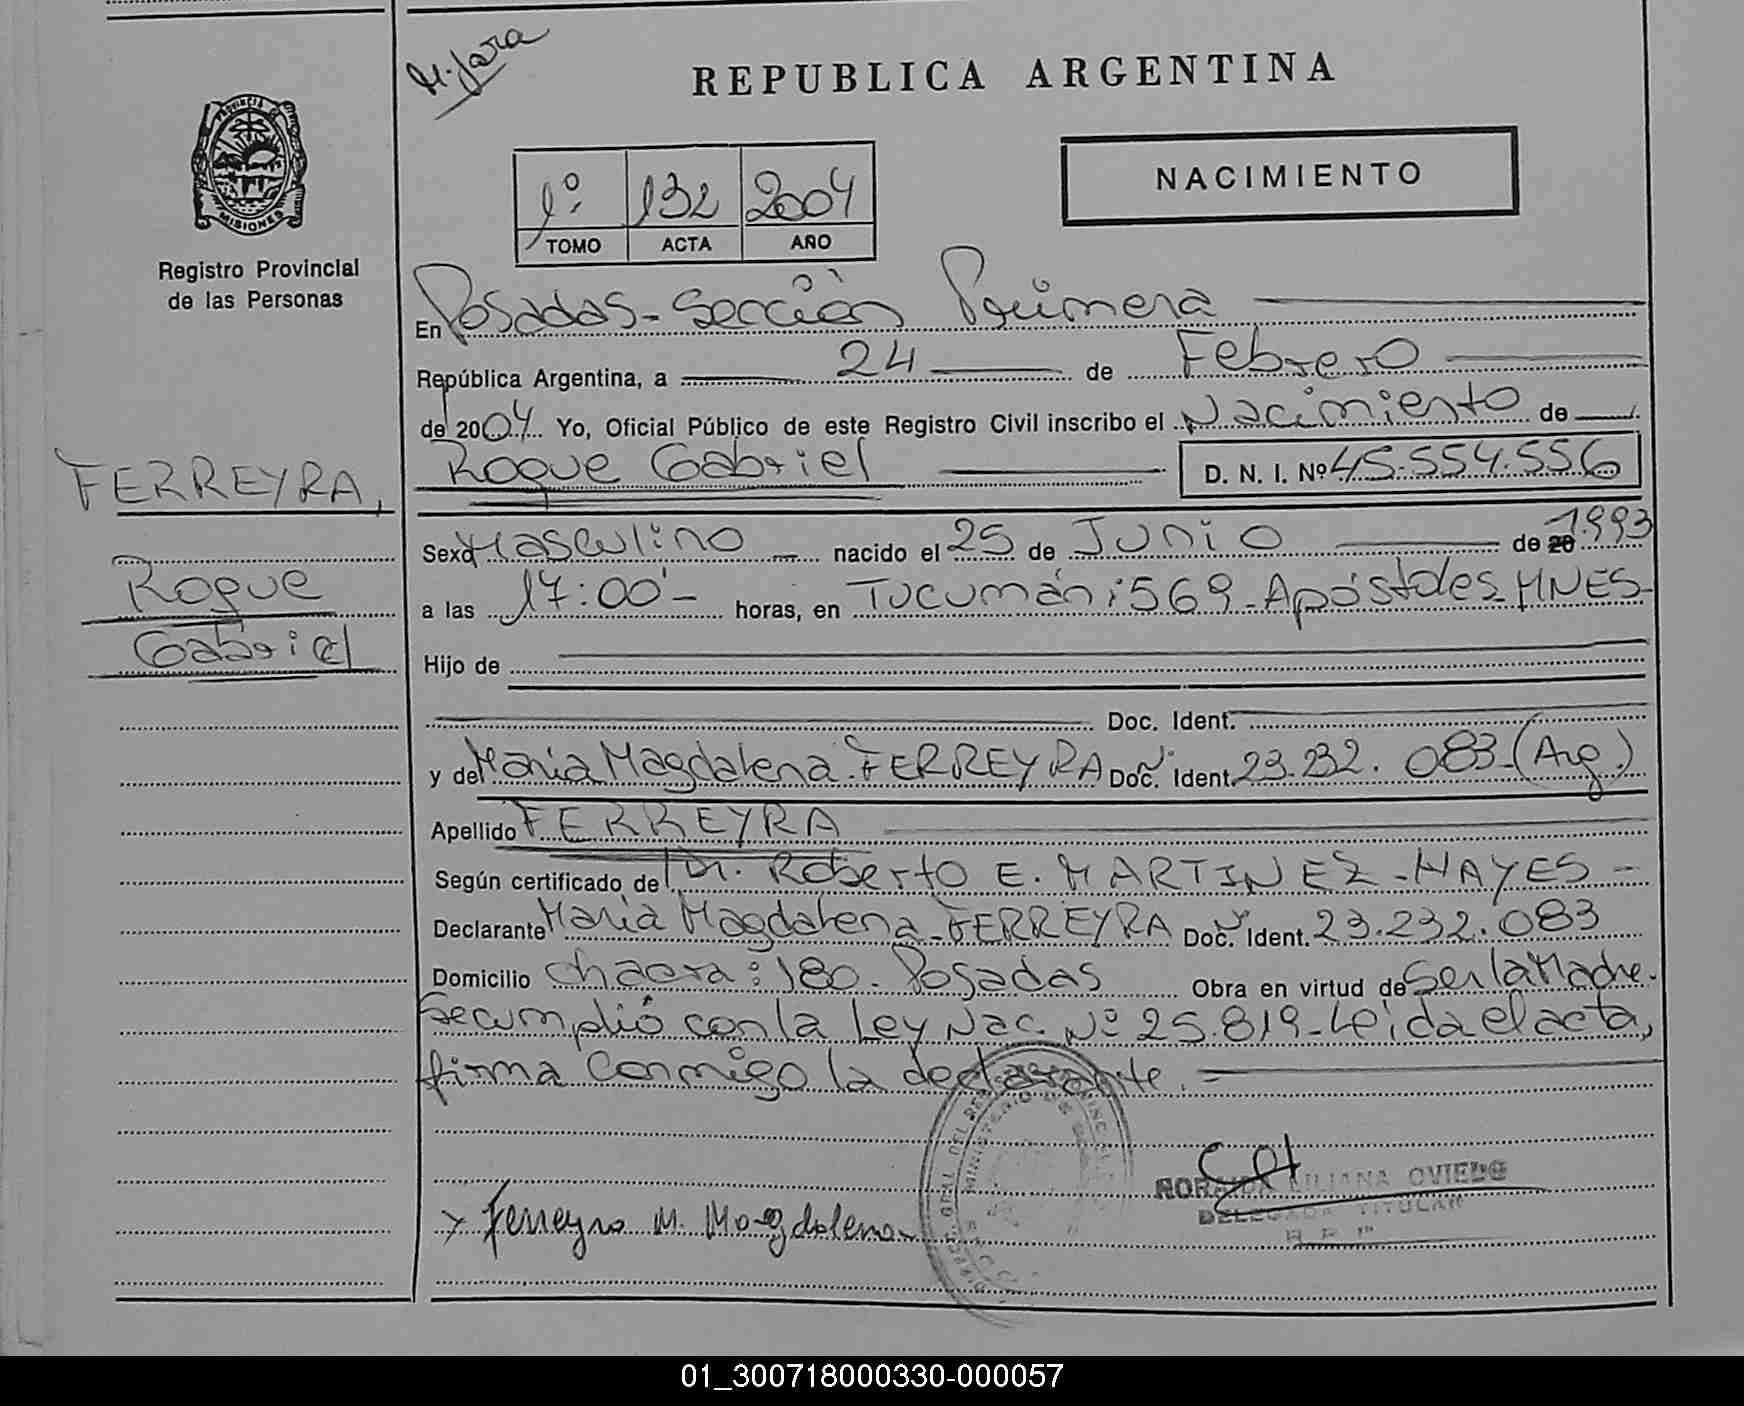 M. Jara
REPUBLICA ARGENTINA
PROVINCIA DE
MISIONES
NACIMIENTO
1º 132 2004
TOMO ACTA AÑO
Registro Provincial
de las Personas
En Posadas - Sección Primera
República Argentina, a 24 de Febrero
de 2004. Yo, Oficial Público de este Registro Civil inscribo el Nacimiento de
FERREYRA,
Roque Gabriel D. N. I. Nº 45.554.556
Sexo Masculino nacido el 25 de Junio de 20 1993
Roque
a las 17:00'- horas, en Tucumán: 569 - Apóstoles - MNES -
Gabriel
Hijo de
Doc. Ident.
y de María Magdalena FERREYRA Doc. Ident. 23.232.083 - (Arg.)
Apellido FERREYRA
Según certificado de Dr. Roberto E. MARTINEZ - HAYES -
Declarante María Magdalena - FERREYRA Doc. Ident. 23.232.083
Domicilio chacra: 180. Posadas Obra en virtud de Ser la Madre.
Se cumplió con la Ley Nac. Nº 25.819 - Leída el acta,
firma conmigo la declarante.
MINISTERIO DE
LILIANA OVIEDO
DELEGADA TITULAR
x Ferreyra M. Magdalena
01_300718000330-000057